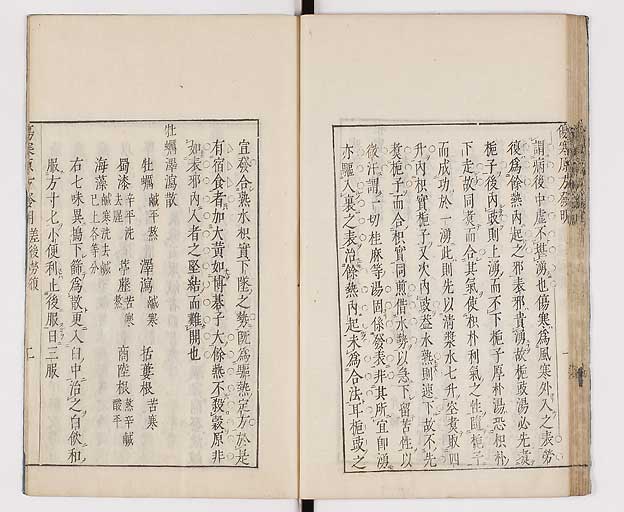 傷寒原方發明
謂病後中虛不堪湧也傷寒為風寒外入之表勞
復為餘熱內起之邪表邪貴湧故梔豉湯必先煑
梔子後內豉則上湧而不下梔子厚朴湯恐枳朴
下走故同煑而合其氣使枳朴利氣之性隨梔子
而成功於一湧此則先以清漿水七升空煑取四
升內枳實梔子又次內豉葢水熟則速下故不先
煑梔子而合枳實同煎借水勢以急下留苦性以
微汗謂一切桂麻等湯固係發表非其所宜卽湧
亦驅入裏之表治餘熱內起未為合法耳梔豉之
宜發合熟水枳實下墜之勢旣為驅熱定方於是
有宿食者加大黃如博碁子大餘熱不殺設原非
如表邪內入者之堅結而難開也
牡蠣澤瀉散
牡蠣 鹹平熬 澤瀉 鹹寒 括蔞根 苦寒
蜀漆 辛平洗去腥 葶藶 苦寒熬 商陸根 辛鹹酸平熬
海藻 鹹寒洗去鹹 已上各等分
右七味異搗下篩為散更入臼中治之白飮和
服方寸匕小便利止後服日三服
傷寒原方發明 差後勞復